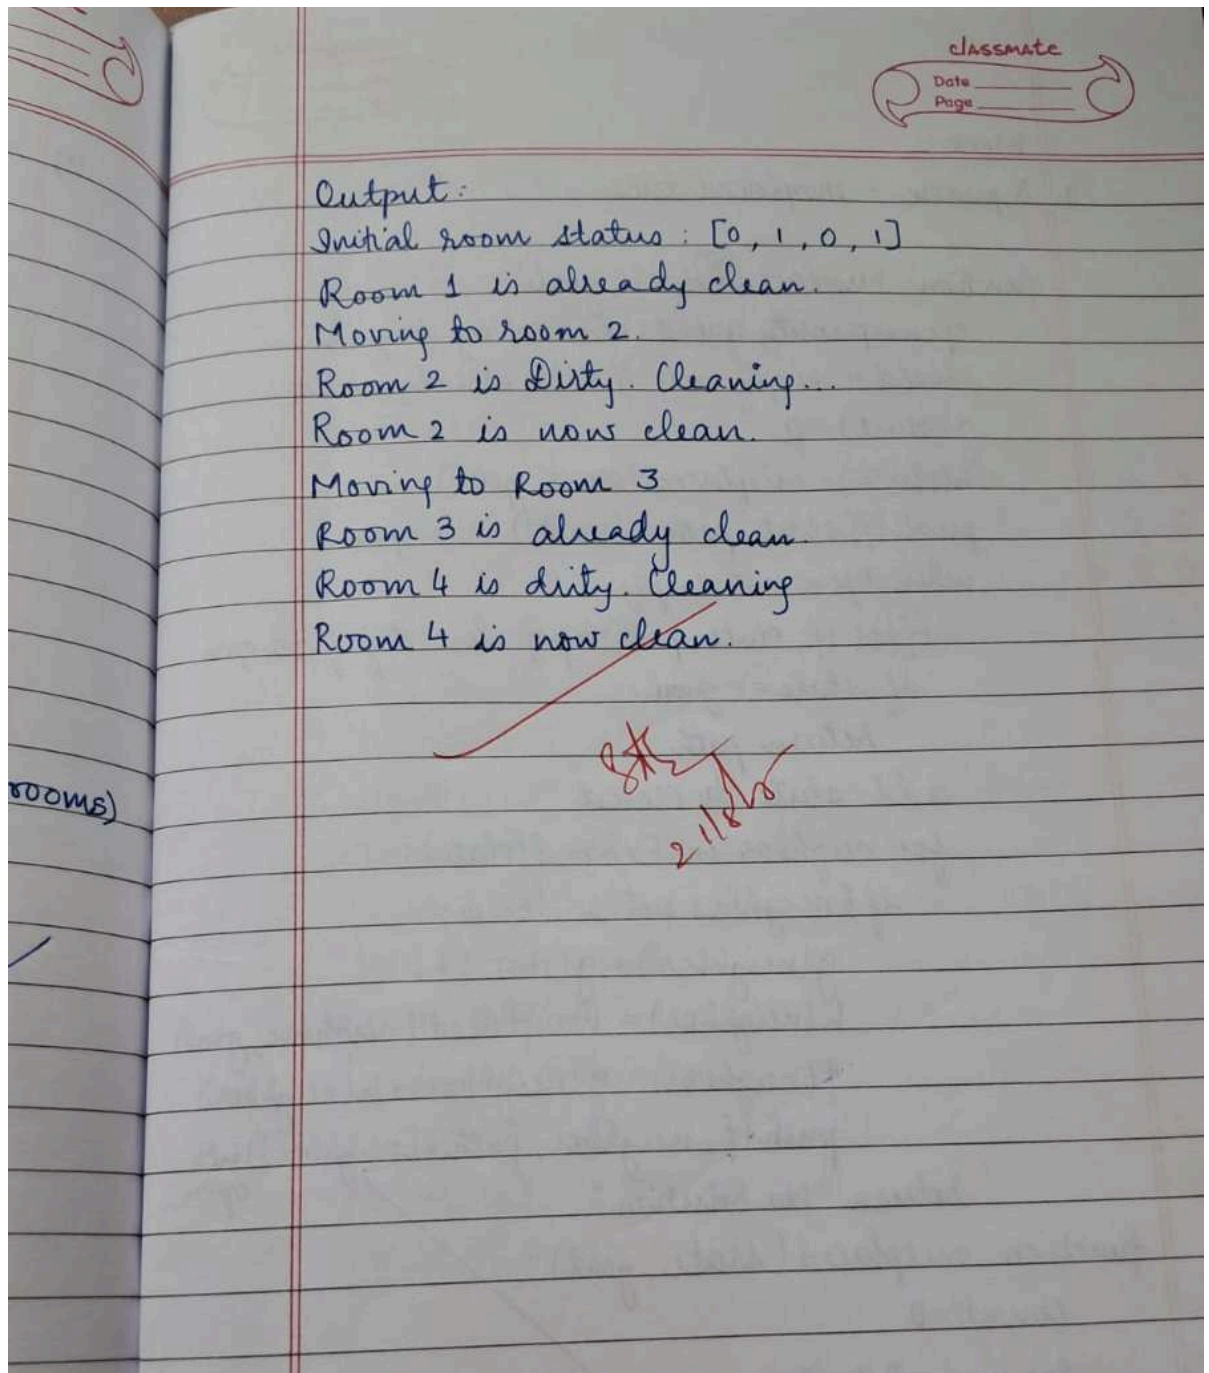 classmate
Date
Page
Output:
Initial room status : [0, 1, 0, 1]
Room 1 is already clean.
Moving to room 2.
Room 2 is Dirty. Cleaning...
Room 2 is now clean.
Moving to Room 3
Room 3 is already clean.
Room 4 is dirty. Cleaning
Room 4 is now clean.
rooms)